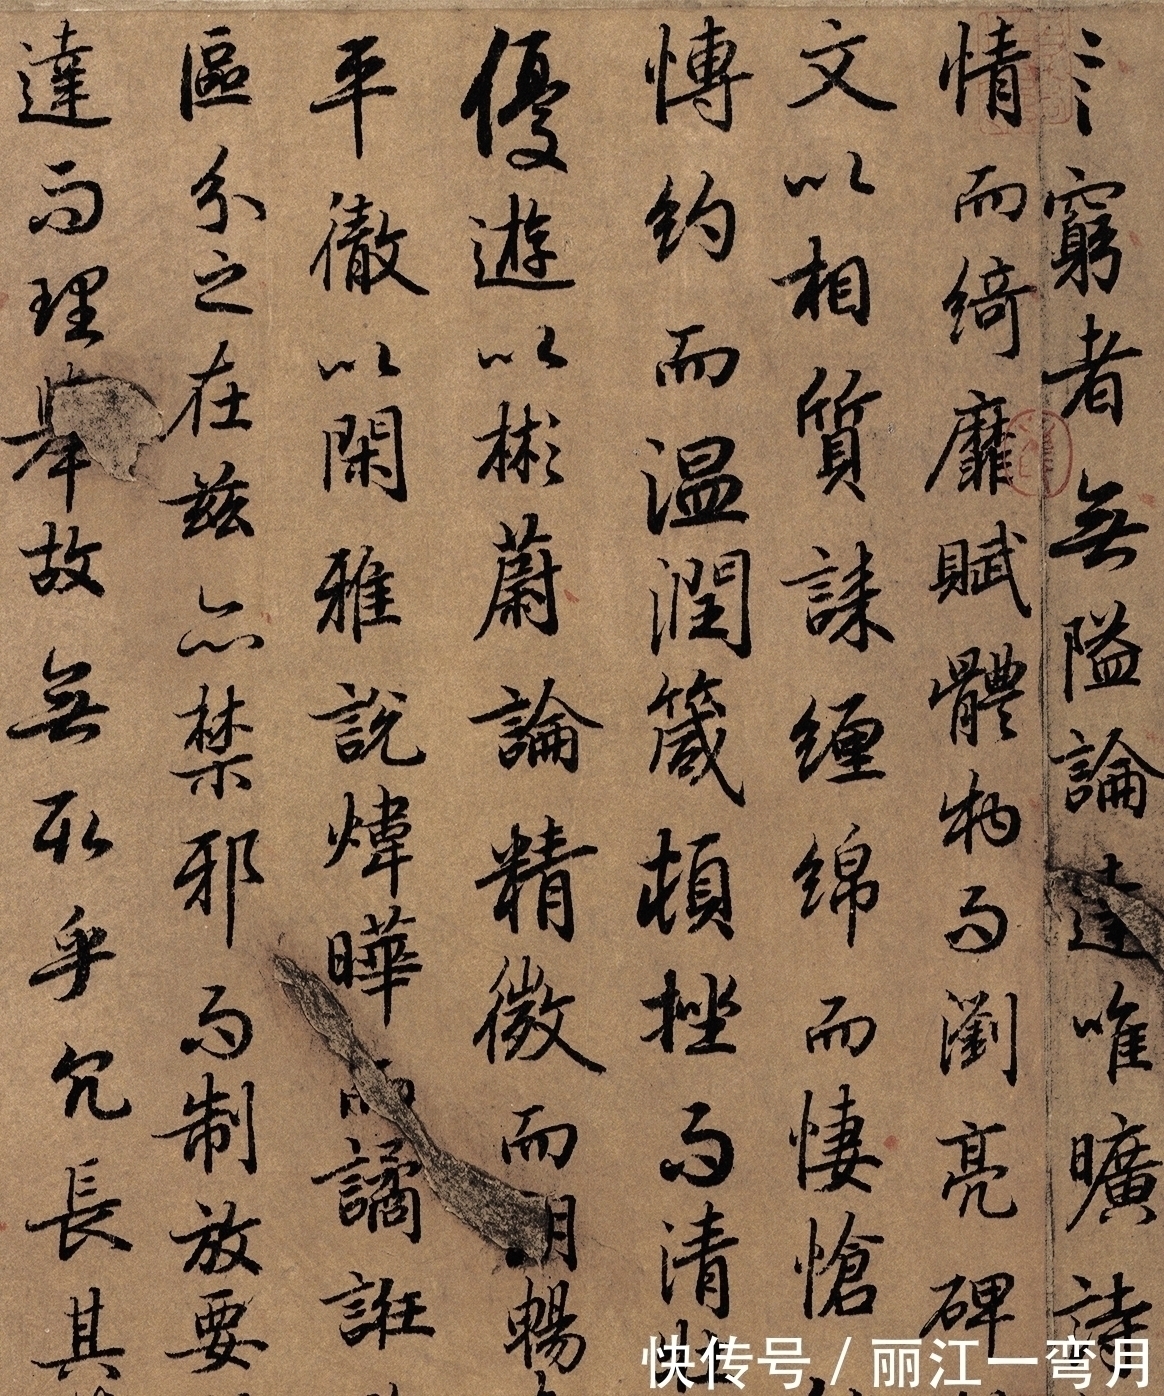 窮者無隘論達唯曠詩
情而綺靡賦體物而瀏亮碑
文以相質誄纏綿而悽愴
博約而温潤箴頓挫而清壯
優遊以彬蔚論精微而朗暢
平徹以閑雅說煒曄而譎誑
區分之在兹亦禁邪而制放要
達而理舉故無取乎冗長其
快传号/丽江一弯月